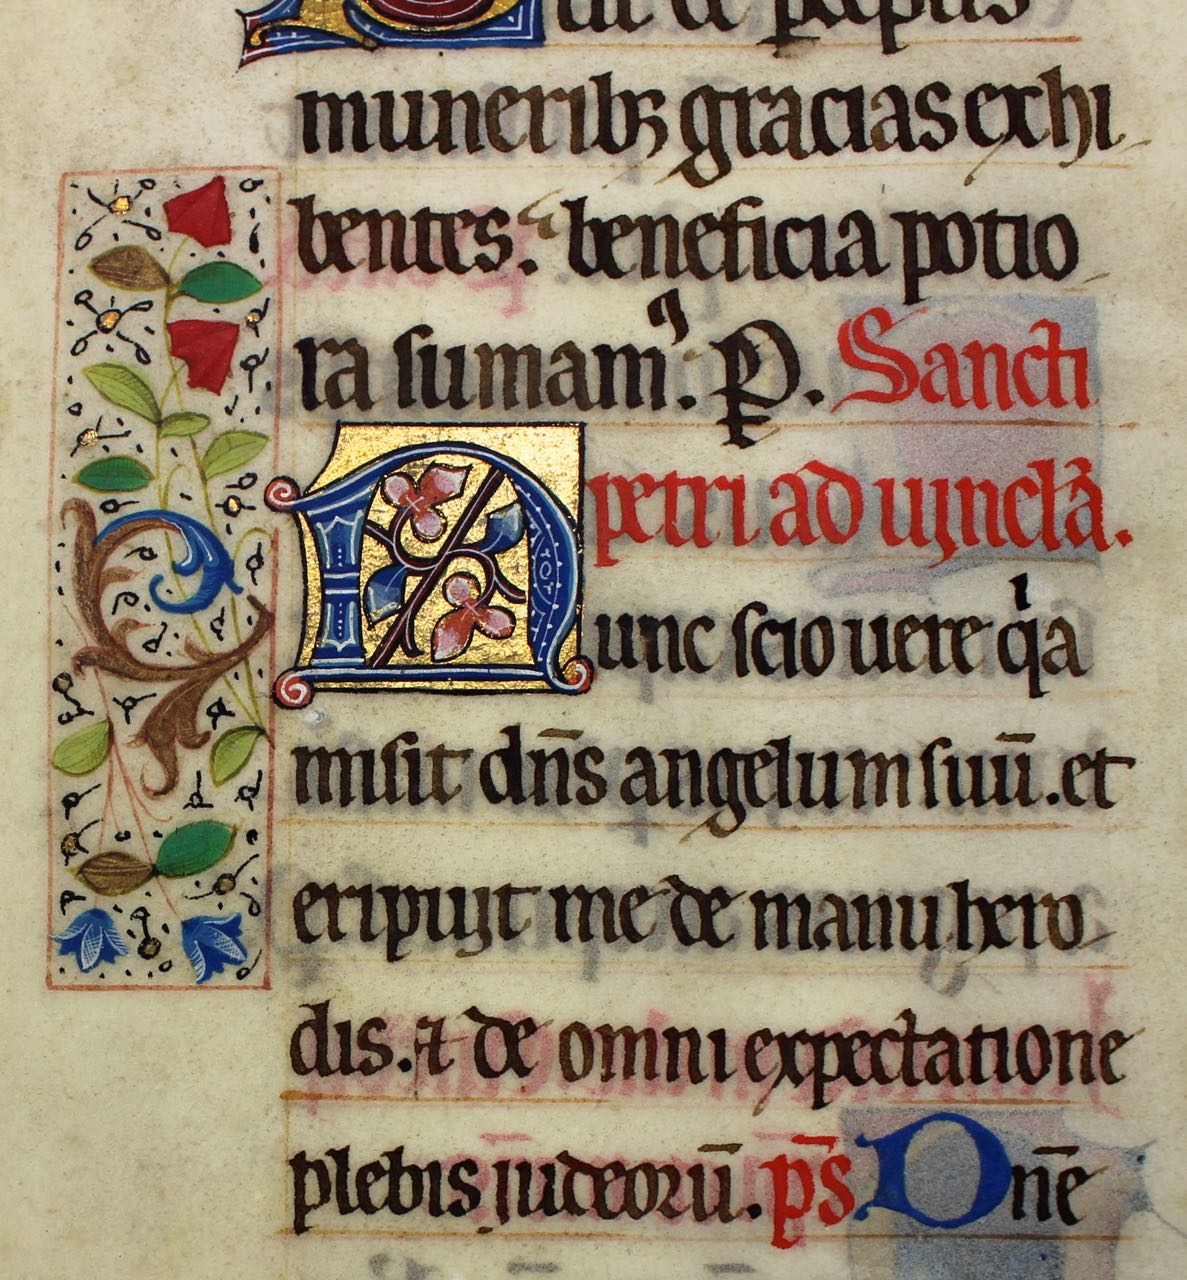 de p̄ceptis
munerib₃ gracias exhi
bentes. beneficia potio
ra sumamꝰ. P. Sancti
petri ad uincl̄a.
Nunc scio uere qⁱa
misit dn̄s angelum suū. et
eripuit me de manu hero
dis. ⁊ de omni expectatione
plebis iudeorū. p̄s Dn̄e